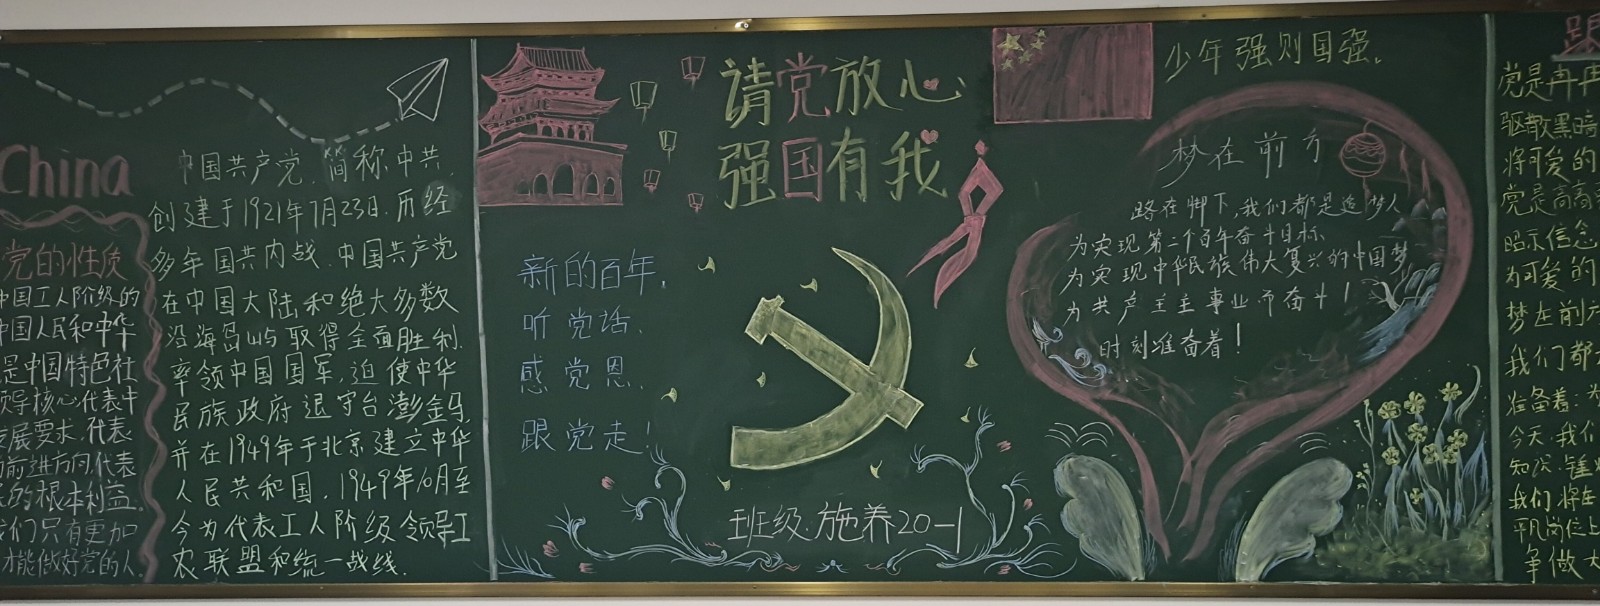 China
党的性质
中国工人阶级的
中国人民和中华
是中国特色社
领导核心代表中
发展要求.代表
前进方向.代表
的根本利益.
我们只有更加
才能做好党的人.
中国共产党.简称中共.
创建于1921年7月23日.历经
多年国共内战.中国共产党
在中国大陆和绝大多数
沿海岛屿取得全面胜利.
率领中国国军,迫使中华
民族政府退守台澎金马.
并在1949年于北京建立中华
人民共和国.1949年10月至
今为代表工人阶级领导工
农联盟和统一战线.
请党放心
强国有我
新的百年,
听党话.
感党恩.
跟党走!
班级.施养20-1
少年强则国强.
梦在前方
路在脚下,我们都是追梦人
为实现第二个百年奋斗目标
为实现中华民族伟大复兴的中国梦
为共产主主事业而奋斗!
时刻准奋着!
跟
党是冉冉
驱散黑暗
将可爱的
党是高高
昭示信念
为可爱的
梦在前方
我们都
准备着:为
今天.我们
知识.锤炼
我们将在
平凡岗位上
争做大